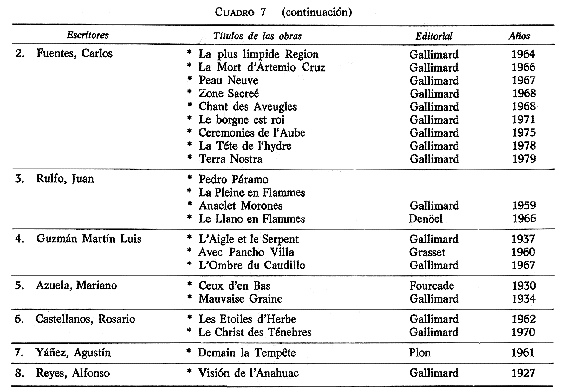 CUADRO 7 (continuación)
Escritores Títulos de las obras Editorial Años
2. Fuentes, Carlos * La plus limpide Region Gallimard 1964
* La Mort d'Artemio Cruz Gallimard 1966
* Peau Neuve Gallimard 1967
* Zone Sacreé Gallimard 1968
* Chant des Aveugles Gallimard 1968
* Le borgne est roi Gallimard 1971
* Ceremonies de l'Aube Gallimard 1975
* La Tête de l'hydre Gallimard 1978
* Terra Nostra Gallimard 1979
3. Rulfo, Juan * Pedro Páramo
* La Pleine en Flammes
* Anaclet Morones Gallimard 1959
* Le Llano en Flammes Denöel 1966
4. Guzmán Martín Luis * L'Aigle et le Serpent Gallimard 1937
* Avec Pancho Villa Grasset 1960
* L'Ombre du Caudillo Gallimard 1967
5. Azuela, Mariano * Ceux d'en Bas Fourcade 1930
* Mauvaise Graine Gallimard 1934
6. Castellanos, Rosario * Les Etoiles d'Herbe Gallimard 1962
* Le Christ des Ténebres Gallimard 1970
7. Yáñez, Agustín * Demain la Tempête Plon 1961
8. Reyes, Alfonso * Visión de l'Anahuac Gallimard 1927